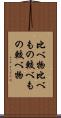 比べ物比べ
もの較べも
の較べ物